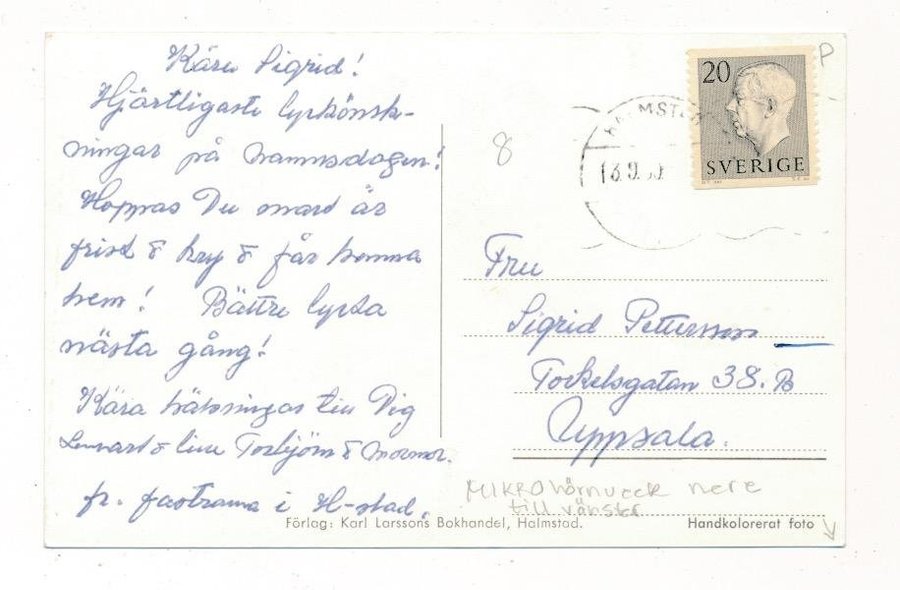 Kära Sigrid!
Hjärtligaste lyckönsk-
ningar på namnsdagen!
Hoppas Du snart är
frisk & kry & får komma
hem! Bättre lycka
nästa gång!
Kära hälsningar till Dig
Lennart & lille Torbjörn & Mormor.
fr. fastrarna i H-stad.
8
P
20
SVERIGE
Fru
Sigrid Pettersson
Torkelsgatan 38. B
Uppsala.
MIKROhörnveck nere
till vänster
Förlag: Karl Larssons Bokhandel, Halmstad.
Handkolorerat foto